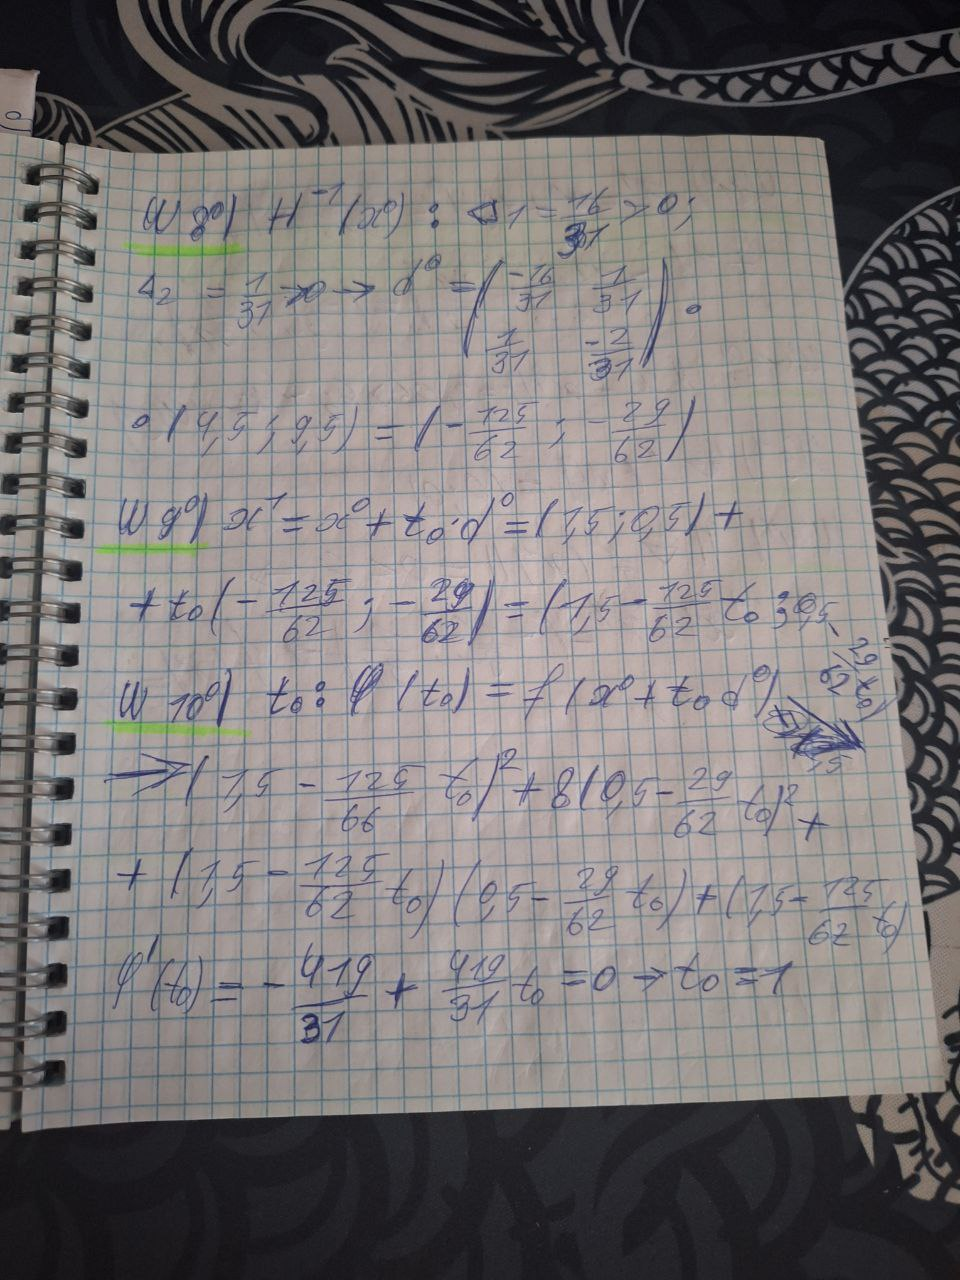 Ш 8⁰) H⁻¹(x⁰) : Δ1 = 16/31 > 0;
Δ2 = 1/31 > 0 → d⁰ = ( -16/31 1/31
1/31 -2/31 ) ·
· (4,5 ; 9,5) = (- 125/62 ; - 29/62)
Ш 9⁰) x¹ = x⁰ + t₀ · d⁰ = (1,5 ; 0,5) +
+ t₀ (- 125/62 ; - 29/62) = (1,5 - 125/62 t₀ ; 0,5 - 29/62 t₀)
Ш 10⁰) t₀ : φ (t₀) = f (x⁰ + t₀ d⁰)
⇒ (1,5 - 125/66 t₀)² + 8(0,5 - 29/62 t₀)² +
+ (1,5 - 125/62 t₀) (0,5 - 29/62 t₀) + (1,5 - 125/62 t₀)
φ'(t₀) = - 419/31 + 419/31 t₀ = 0 → t₀ = 1